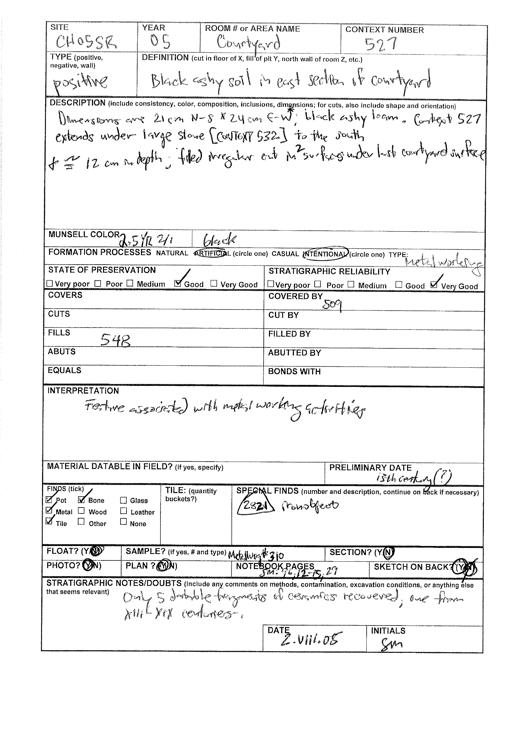 SITE YEAR ROOM # or AREA NAME CONTEXT NUMBER
CH05SR 05 Courtyard 527
TYPE (positive, negative, wall) DEFINITION (cut in floor of X, fill of pit Y, north wall of room Z, etc.)
positive Black ashy soil in east section of courtyard
DESCRIPTION (include consistency, color, composition, inclusions, dimensions; for cuts, also include shape and orientation)
Dimensions are 21cm N-S X 24cm E-W; black ashy loam. Context 527
extends under large stone [CONTEXT 532] to the south
≈ 12 cm in depth; filled irregular cut in surface under last courtyard surface
MUNSELL COLOR 2.5YR 2/1 black
FORMATION PROCESSES NATURAL ARTIFICIAL (circle one) CASUAL INTENTIONAL (circle one) TYPE: Metal working
STATE OF PRESERVATION STRATIGRAPHIC RELIABILITY
Very poor Poor Medium Good Very Good Very poor Poor Medium Good Very Good
COVERS COVERED BY 509
CUTS CUT BY
FILLS 548 FILLED BY
ABUTS ABUTTED BY
EQUALS BONDS WITH
INTERPRETATION
Feature associated with metal working activities
MATERIAL DATABLE IN FIELD? (if yes, specify) PRELIMINARY DATE
(?)
FINDS (tick) TILE: (quantity buckets?) SPECIAL FINDS (number and description, continue on back if necessary)
Pot Bone Glass 2821 iron object
Metal Wood Leather
Tile Other None
FLOAT? (Y/N) SAMPLE? (if yes, # and type) #310 SECTION? (Y/N)
PHOTO? (Y/N) PLAN? (Y/N) NOTEBOOK PAGES SKETCH ON BACK? (Y/N)
STRATIGRAPHIC NOTES/DOUBTS (Include any comments on methods, contamination, excavation conditions, or anything else
that seems relevant) Only 5 datable fragments of ceramics recovered, one from
XIII-XIX centuries.
DATE INITIALS
2.viii.05 SM